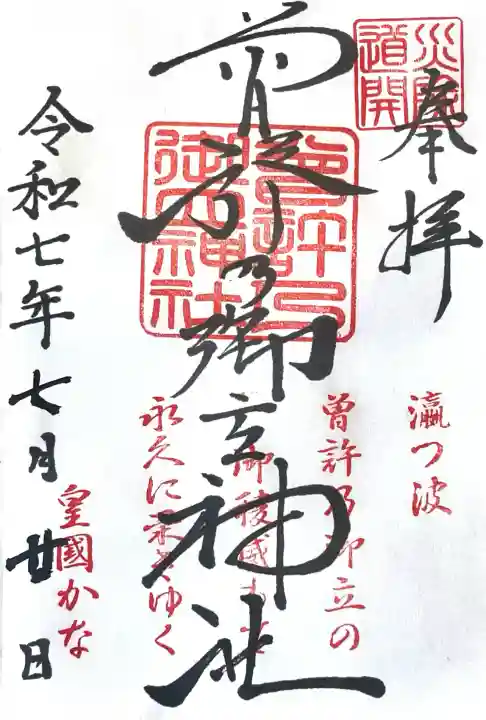 奉拝
災除
道開
曽許乃御立神社
曽許乃
御立神社
瀛つ波
曽許乃御立の
御稜威
永久に栄ゆく
皇國かな
令和七年七月廿日